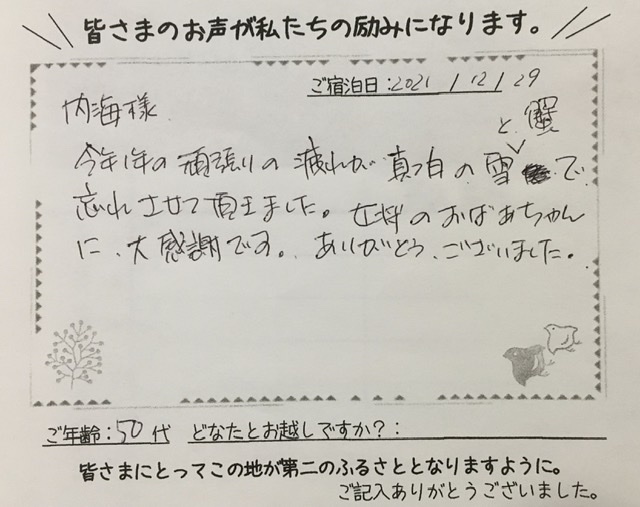 皆さまのお声が私たちの励みになります。
ご宿泊日:2021/12/29
内海様
今年1年の頑張りの疲れが真っ白の雪と蟹で
忘れさせて頂きました。女将のおばあちゃん
に、大感謝です。ありがとうございました。
ご年齢:50代 どなたとお越しですか?:
皆さまにとってこの地が第二のふるさととなりますように。
ご記入ありがとうございました。